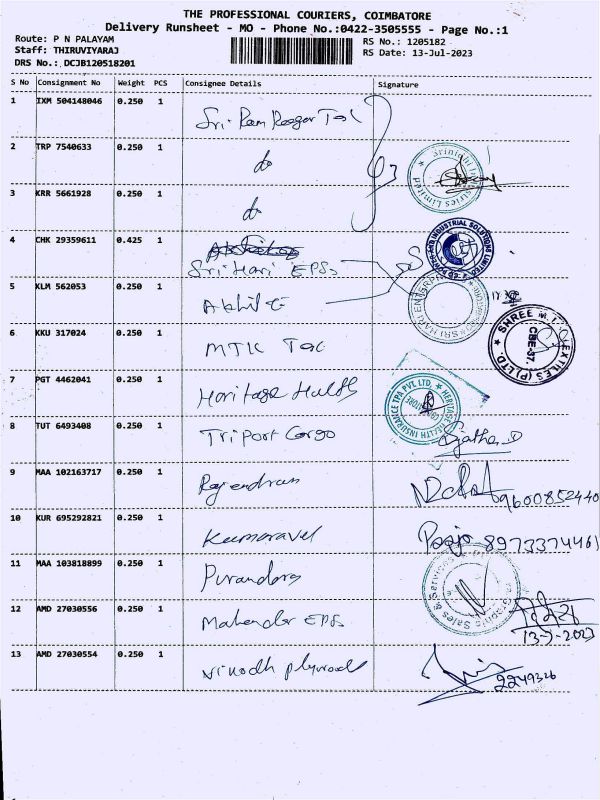 THE PROFESSIONAL COURIERS, COIMBATORE
Delivery Runsheet - MO - Phone No.:0422-3505555 - Page No.:1
Route: P N PALAYAM
Staff: THIRUVIYARAJ
DRS No.: DCJB120518201
RS No.: 1205182
RS Date: 13-Jul-2023
S No Consignment No Weight PCS Consignee Details Signature
1 IXM 504148046 0.250 1
2 TRP 7540633 0.250 1 do
3 KRR 5661928 0.250 1 do
4 CHK 29359611 0.425 1 Sri Hari EPSs
5 KLM 562053 0.250 1
6 KKU 317024 0.250 1 MTK Tex
SHREE M.T.K TEXTILES (P) LTD. CBE-37.
7 PGT 4462041 0.250 1 Heritage Health
HERITAGE HEALTH INSURANCE TPA PVT LTD.
8 TUT 6493408 0.250 1 Triport Cargo
9 MAA 102163717 0.250 1 Rajendran 9600852440
10 KUR 695292821 0.250 1 Kumaravel Pooja 8973374461
11 MAA 103818899 0.250 1
12 AMD 27030556 0.250 1 Mahender EPSs
13-7-2023
13 AMD 27030554 0.250 1 Vinodh plywoods
2249326